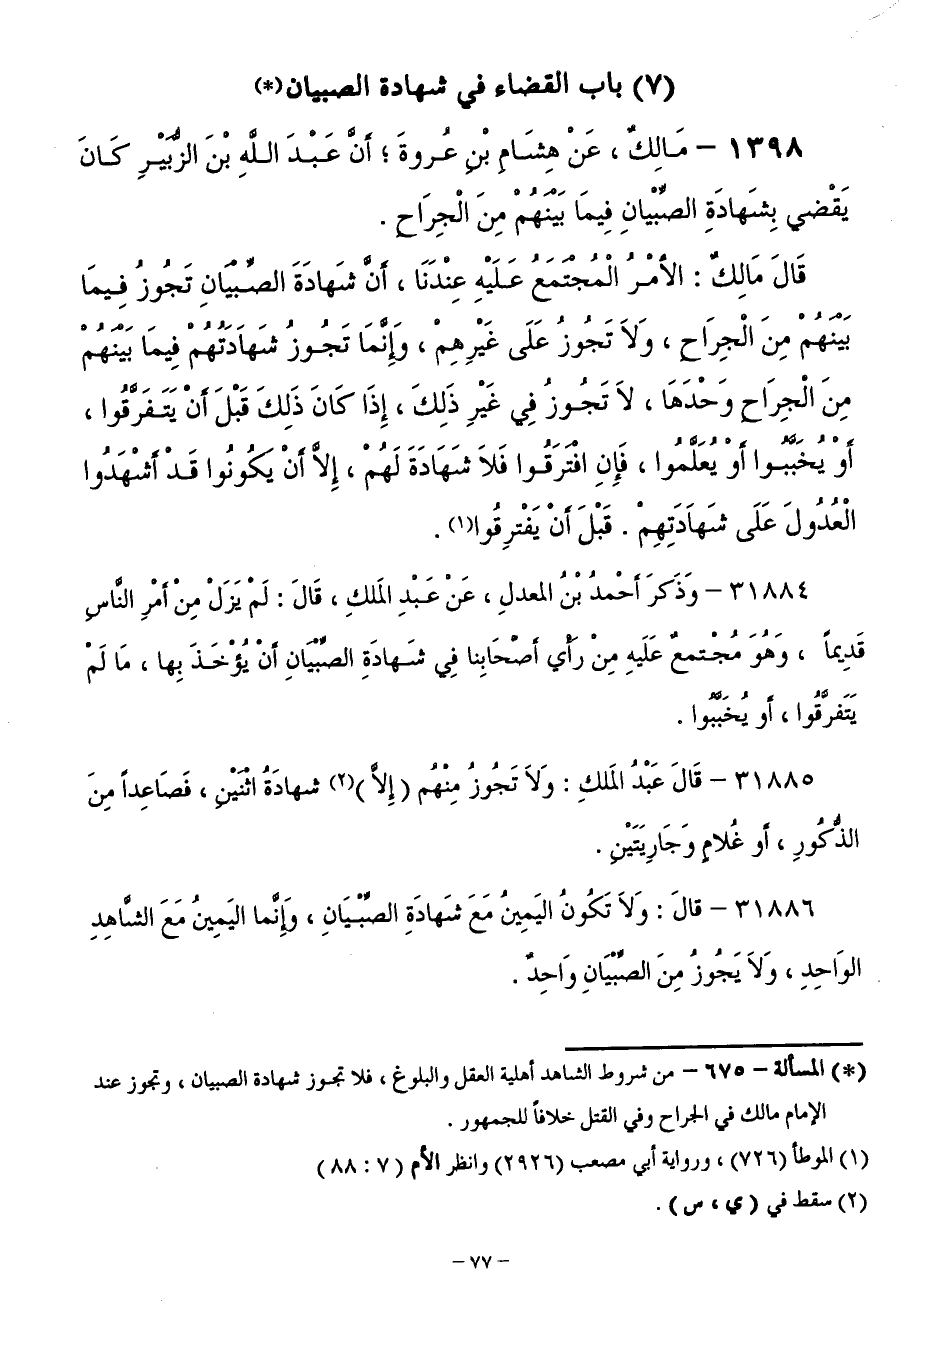 (٧) باب القضاء في شهادة الصبيان(*)
١٣٩٨ – مَالِكٌ ، عَنْ هِشَامِ بْنِ عُروةَ ؛ أَنَّ عَبْدَ اللَّهِ بْنَ الزُّبَيْرِ كَانَ
يَقْضي بِشَهَادَةِ الصِّبْيَانِ فِيمَا بَيْنَهُمْ مِنَ الْجِرَاحِ .
قَالَ مَالِكٌ : الأَمْرُ الْمُجْتَمَعُ عَلَيْهِ عِنْدَنَا ، أَنَّ شَهَادَةَ الصِّبْيَانِ تَجُوزُ فِيمَا
بَيْنَهُمْ مِنَ الْجِرَاحِ ، وَلاَ تَجُوزُ عَلَى غَيْرِهِمْ ، وَإِنَّمَا تَجُوزُ شَهَادَتُهُمْ فِيمَا بَيْنَهُمْ
مِنَ الْجِرَاحِ وَحْدَهَا ، لاَ تَجُوزُ فِي غَيْرِ ذَلِكَ ، إِذَا كَانَ ذَلِكَ قَبْلَ أَنْ يَتَفَرَّقُوا ،
أَوْ يُخَبَّبُوا أَوْ يُعَلَّمُوا ، فَإِنِ افْتَرَقُوا فَلاَ شَهَادَةَ لَهُمْ ، إِلاَّ أَنْ يَكُونُوا قَدْ أَشْهَدُوا
الْعُدُولَ عَلَى شَهَادَتِهِمْ . قَبْلَ أَنْ يَفْترِقُوا(١) .
٣١٨٨٤ – وَذَكَرَ أَحْمدُ بْنُ المعدلِ ، عَنْ عَبْدِ المَلكِ ، قَالَ : لَمْ يَزَلْ مِنْ أَمْرِ النَّاسِ
قَدِيماً ، وَهُوَ مُجْتمعٌ عَلَيهِ مِنْ رَأْي أَصْحَابِنا فِي شَهادَةِ الصِّبْيَانِ أَنْ يُؤْخَذَ بِها ، مَا لَمْ
يَتَفرَّقُوا ، أَو يُخَبَّبُوا .
٣١٨٨٥ – قَالَ عَبْدُ المَلكِ : وَلاَ تَجُوزُ مِنْهُم (إِلاَّ)(٢) شهادَةُ اثْنَيْنِ ، فَصَاعِداً مِنَ
الذُّكُورِ ، أَو غُلامٍ وَجَارِيَتَيْنِ .
٣١٨٨٦ – قالَ : وَلاَ تَكُونُ اليَمِينُ مَعَ شَهَادَةِ الصِّبْيَانِ ، وَإِنَّما اليَمِينُ مَعَ الشَّاهِدِ
الوَاحِدِ ، وَلاَ يَجُوزُ مِنَ الصِّبْيَانِ وَاحِدٌ .
(*) المسألة – ٦٧٥ – من شروط الشاهد أهلية العقل والبلوغ ، فلا تجوز شهادة الصبيان ، وتجوز عند
الإمام مالك في الجراح وفي القتل خلافاً للجمهور .
(١) الموطأ (٧٢٦) ، ورواية أبي مصعب (٢٩٢٦) وانظر الأم (٧ : ٨٨)
(٢) سقط في (ي ، س) .
– ٧٧ –